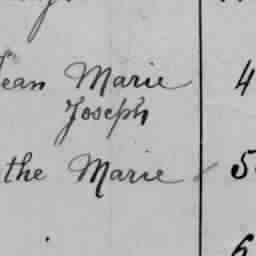 Jean Marie 4
Joseph
the Marie 5
6